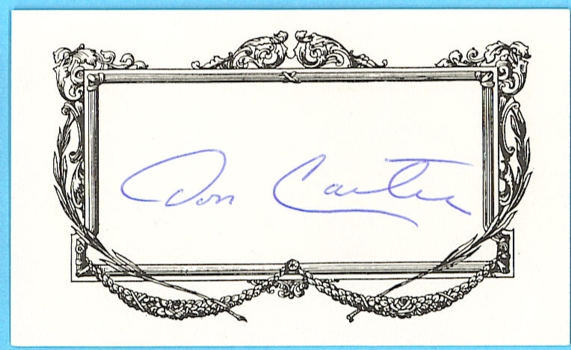 Don Carter